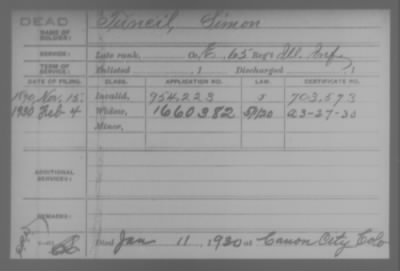 DEAD
NAME OF SOLDIER: Simon
SERVICE: Late rank, Co. E, 65 Reg't Ill. Inf.
TERM OF SERVICE: Enlisted , 1 Discharged , 1
DATE OF FILING. CLASS. APPLICATION NO. LAW. CERTIFICATE NO.
1890 Nov. 15. Invalid, 954.223 703,573
1930 Feb 4 Widow, 1660382 5/1/20 A3-27-30
Minor,
ADDITIONAL SERVICES:
REMARKS:
Died Jan 11, 1930 at Canon City Colo